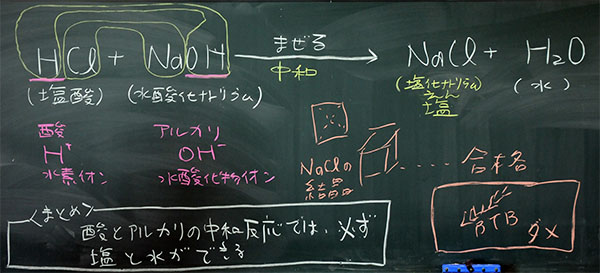 HCl + NaOH まぜる 中和 NaCl + H₂O
(塩酸) (水酸化ナトリウム) (塩化ナトリウム) (水)
えん
塩
酸 アルカリ
H⁺ OH⁻
水素イオン 水酸化物イオン
NaClの
結晶
合格
BTB ダメ
<まとめ>
酸とアルカリの中和反応では、必ず
塩と水ができる